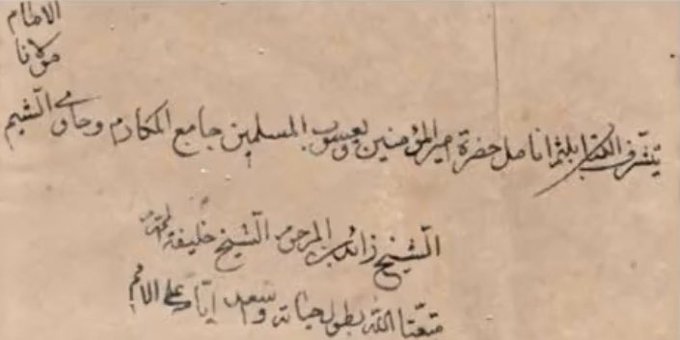 الامام
مولانا
يتشرف الكتاب بلثم انامل حضرة امير المؤمنين ويعسوب المسلمين جامع المكارم وحاوي الشيم
الشيخ زائد بن المرحوم الشيخ خليفة المحترم
متعنا الله بطول حياته وسعد ايامه على الامم